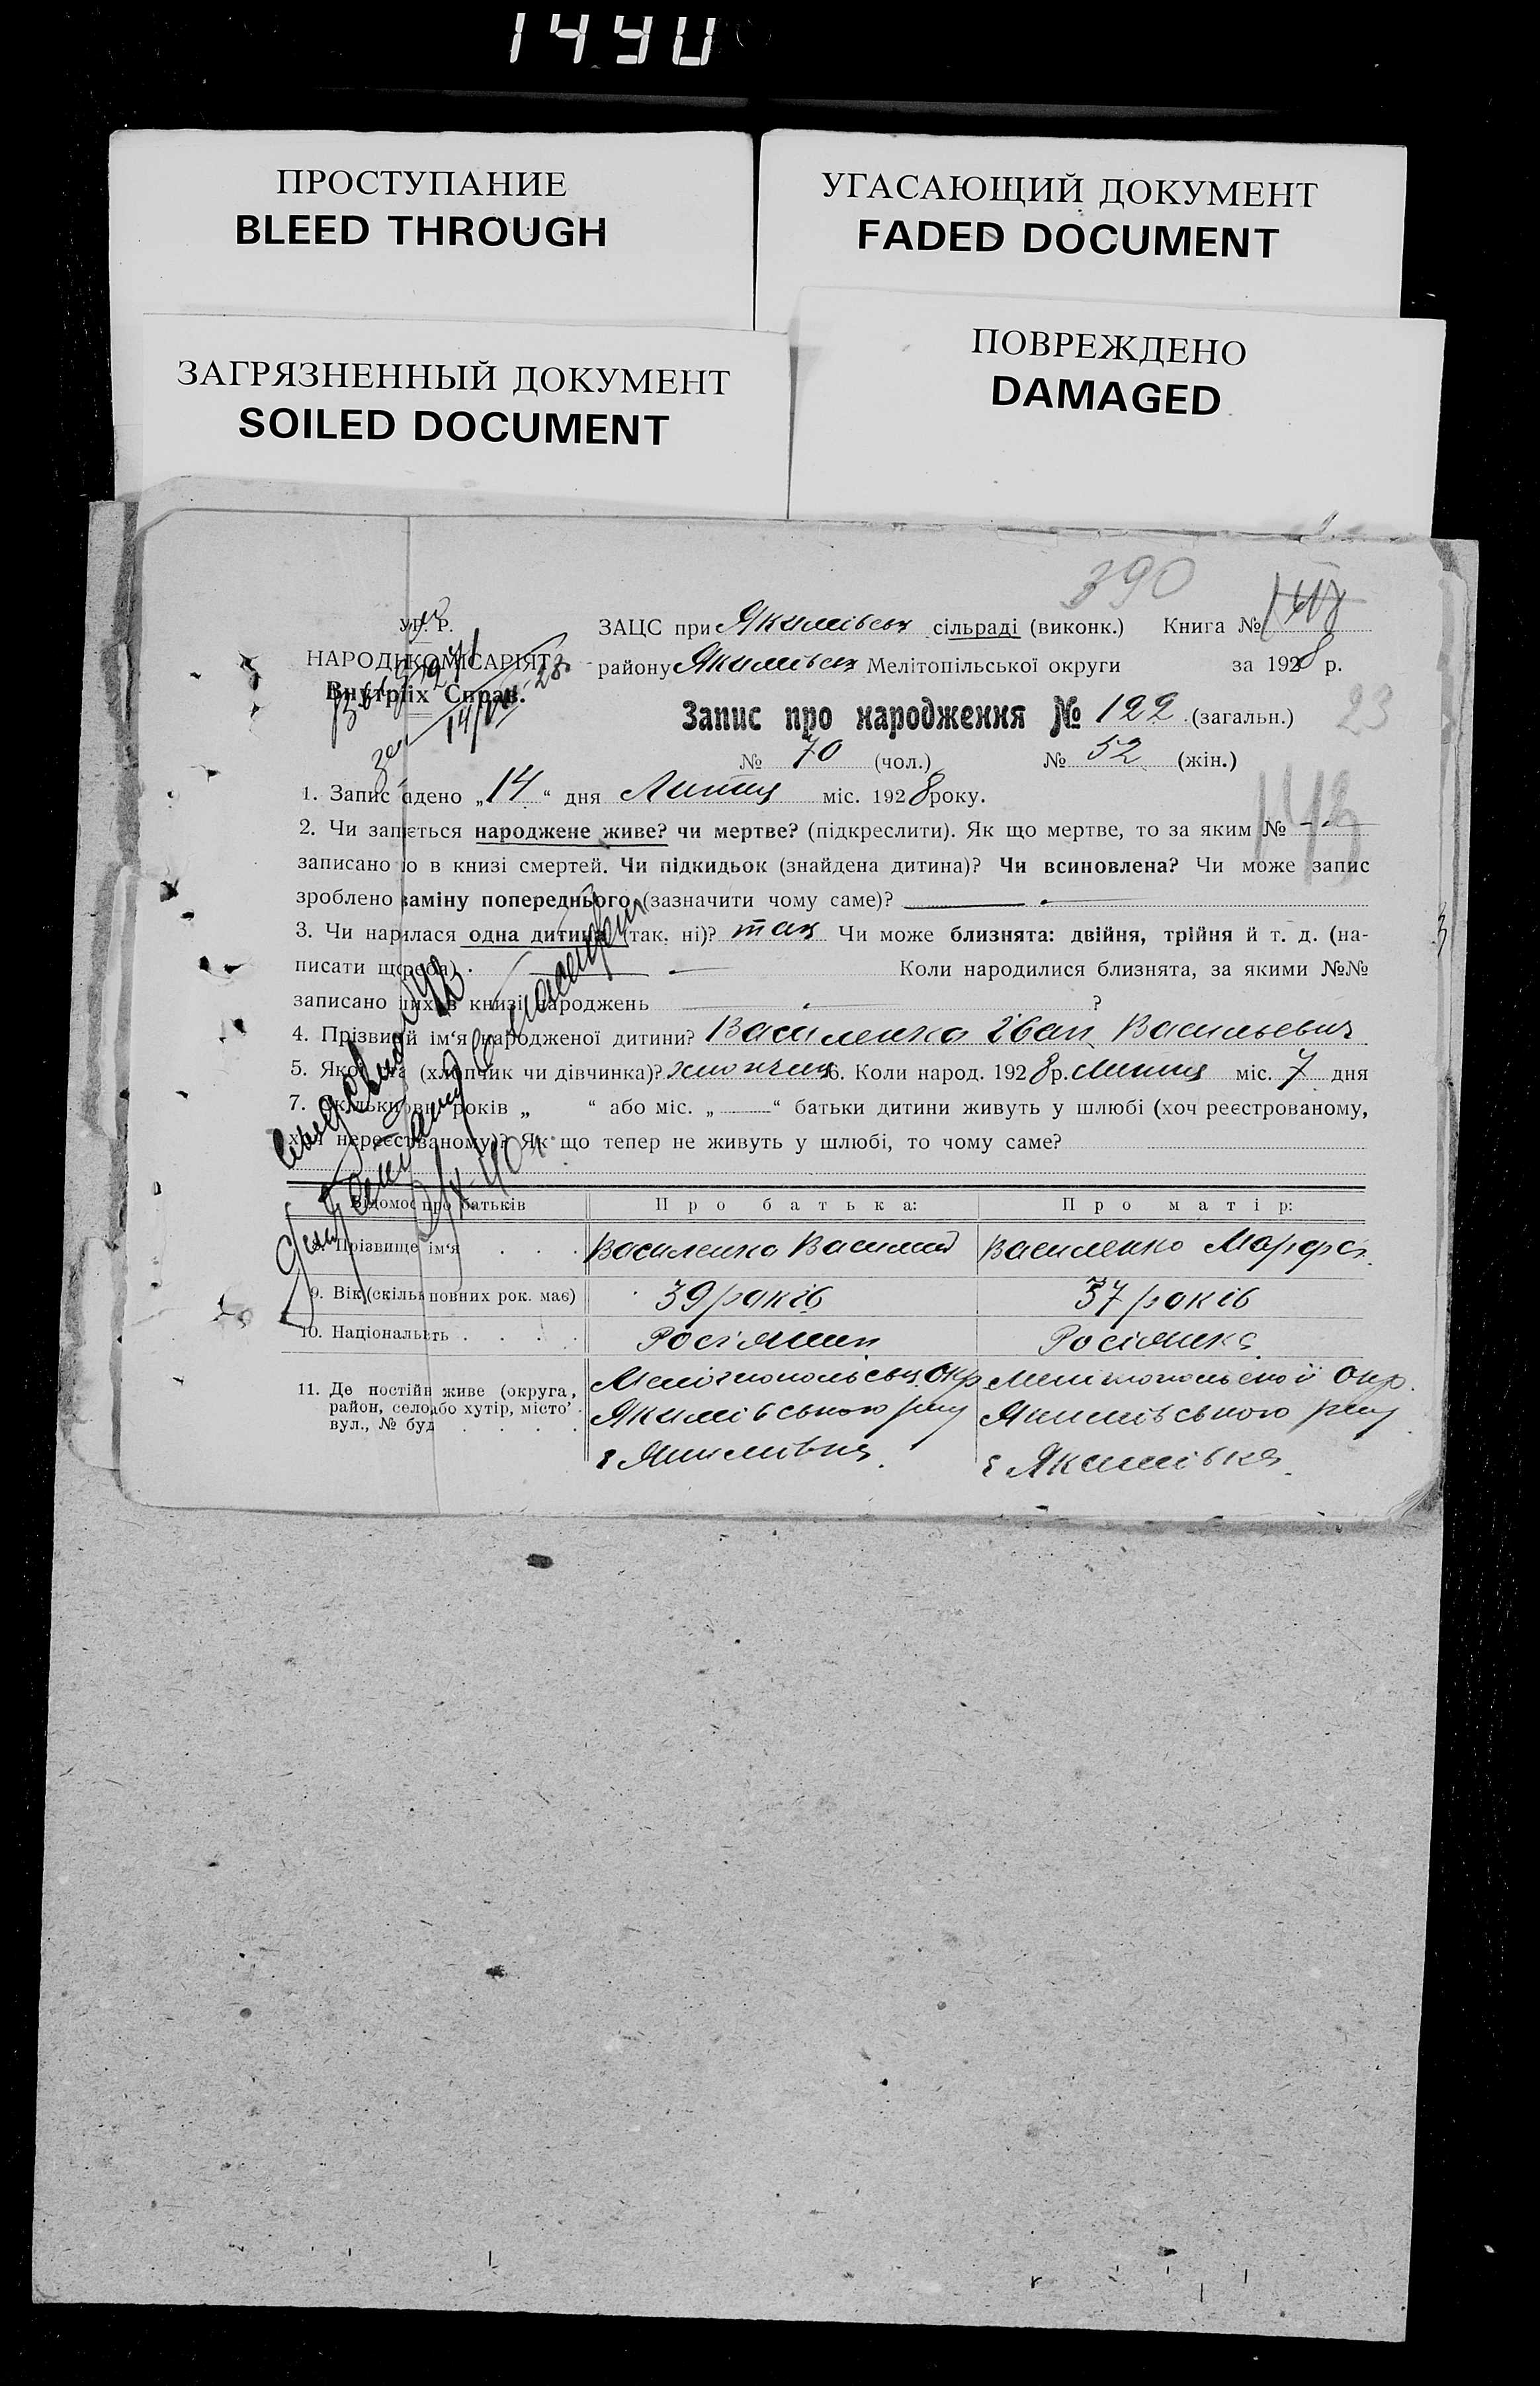 1440
ПРОСТУПАНИЕ
BLEED THROUGH
УГАСАЮЩИЙ ДОКУМЕНТ
FADED DOCUMENT
ЗАГРЯЗНЕННЫЙ ДОКУМЕНТ
SOILED DOCUMENT
ПОВРЕЖДЕНО
DAMAGED
390
ЗАЦС при Якимівськ сільраді (виконк.) Книга №
НАРОДКОМІСАРІЯТ
району Якимівськ Мелітопільської округи за 1928 р.
Внутріх Справ.
Запис про народження № 122 (загальн.)
23
№ 70 (чол.) № 52 (жін.)
143
1. Запис адено „14“ дня Липця міс. 1928 року.
2. Чи зап ється народжене живе? чи мертве? (підкреслити). Як що мертве, то за яким № -
записано ю в книзі смертей. Чи підкидьок (знайдена дитина)? Чи всиновлена? Чи може запис
зроблено заміну попереднього (зазначити чому саме)?
3. Чи нар лася одна дитина (так. ні)? так Чи може близнята: двійня, трійня й т. д. (на-
писати Коли народилися близнята, за якими №№
записано них в книзі народжень ?
4. Прізви й ім‘я народженої дитини? Василенко Іван Васильевич
5. (хлопчик чи дівчинка)? хлопчик 6. Коли народ. 1928 р. Липця міс. 7 дня
7. років „ “ або міс. „ “ батьки дитини живуть у шлюбі (хоч реєстрованому,
нереєст ваному)? Як що тепер не живуть у шлюбі, то чому саме?
Відомос про батьків Про батька: Про матір:
Прізвище ім‘я Василенко Василий Василенко Марфа
9. Вік (скіль повних рок. має) 39 років 37 років
10. Національ ть Росіянин Росіянка
11. Де постійн живе (округа, район, село або хутір, місто вул., № буд
Мелітопольськ. Окр Мелітопольської Окр.
Якимівського р-ну Якимівського р-ну
с Якимівка с Якимівка